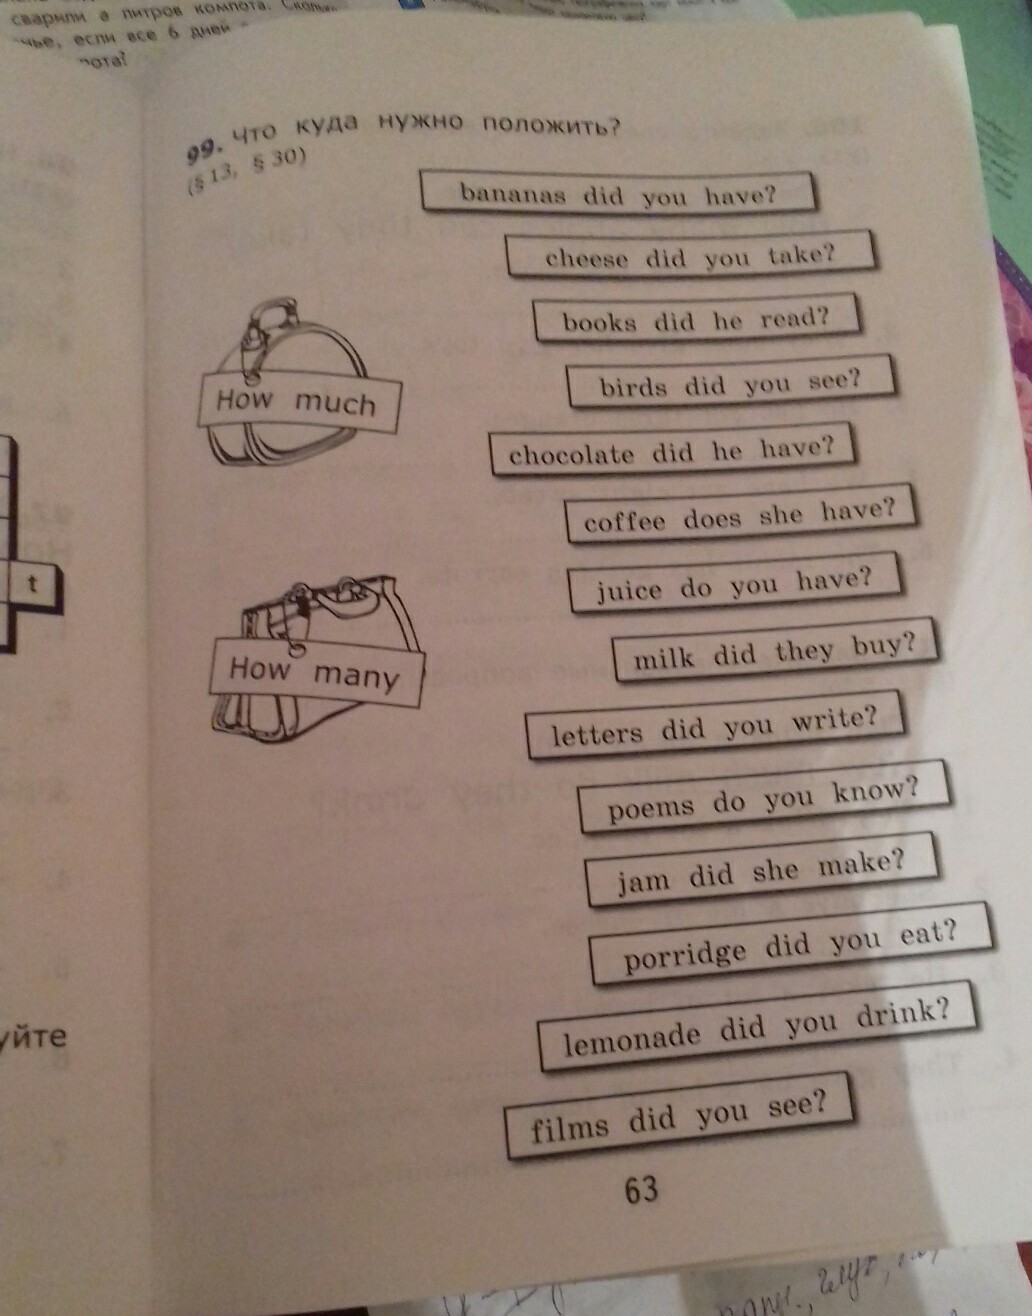 сварили а питров компота.
если все 6 дней
99. Что куда нужно положить?
(§ 13, § 30)
bananas did you have?
cheese did you take?
books did he read?
birds did you see?
How much
chocolate did he have?
coffee does she have?
juice do you have?
t
milk did they buy?
How many
letters did you write?
poems do you know?
jam did she make?
porridge did you eat?
уйте
lemonade did you drink?
films did you see?
63